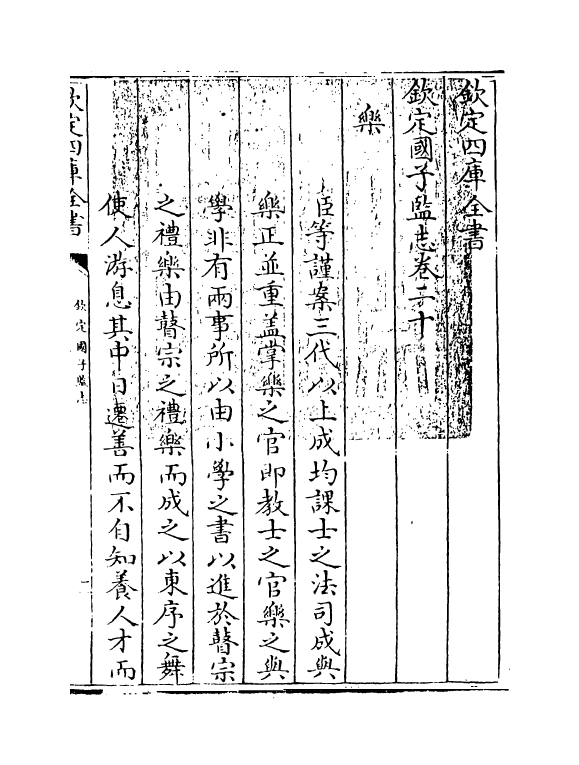 欽定四庫全書
欽定國子監志卷二十
樂
臣等謹案三代以上成均課士之法司成與
樂正並重盖掌樂之官即教士之官樂之與
學非有兩事所以由小學之書以進於瞽宗
之禮樂由瞽宗之禮樂而成之以東序之舞
使人游息其中日遷善而不自知養人才而
欽定四庫全書
欽定國子監志
一